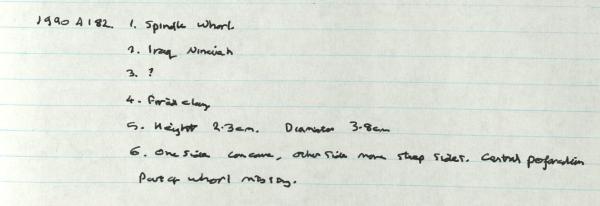 1990 A 182. 1. Spindle Whorl
2. Iraq Nineveh
3. ?
4. Fired clay
5. Height 2.3cm. Diameter 3.8cm
6. One side concave, other side more steep sides. Central perforation
Part of whorl missing.